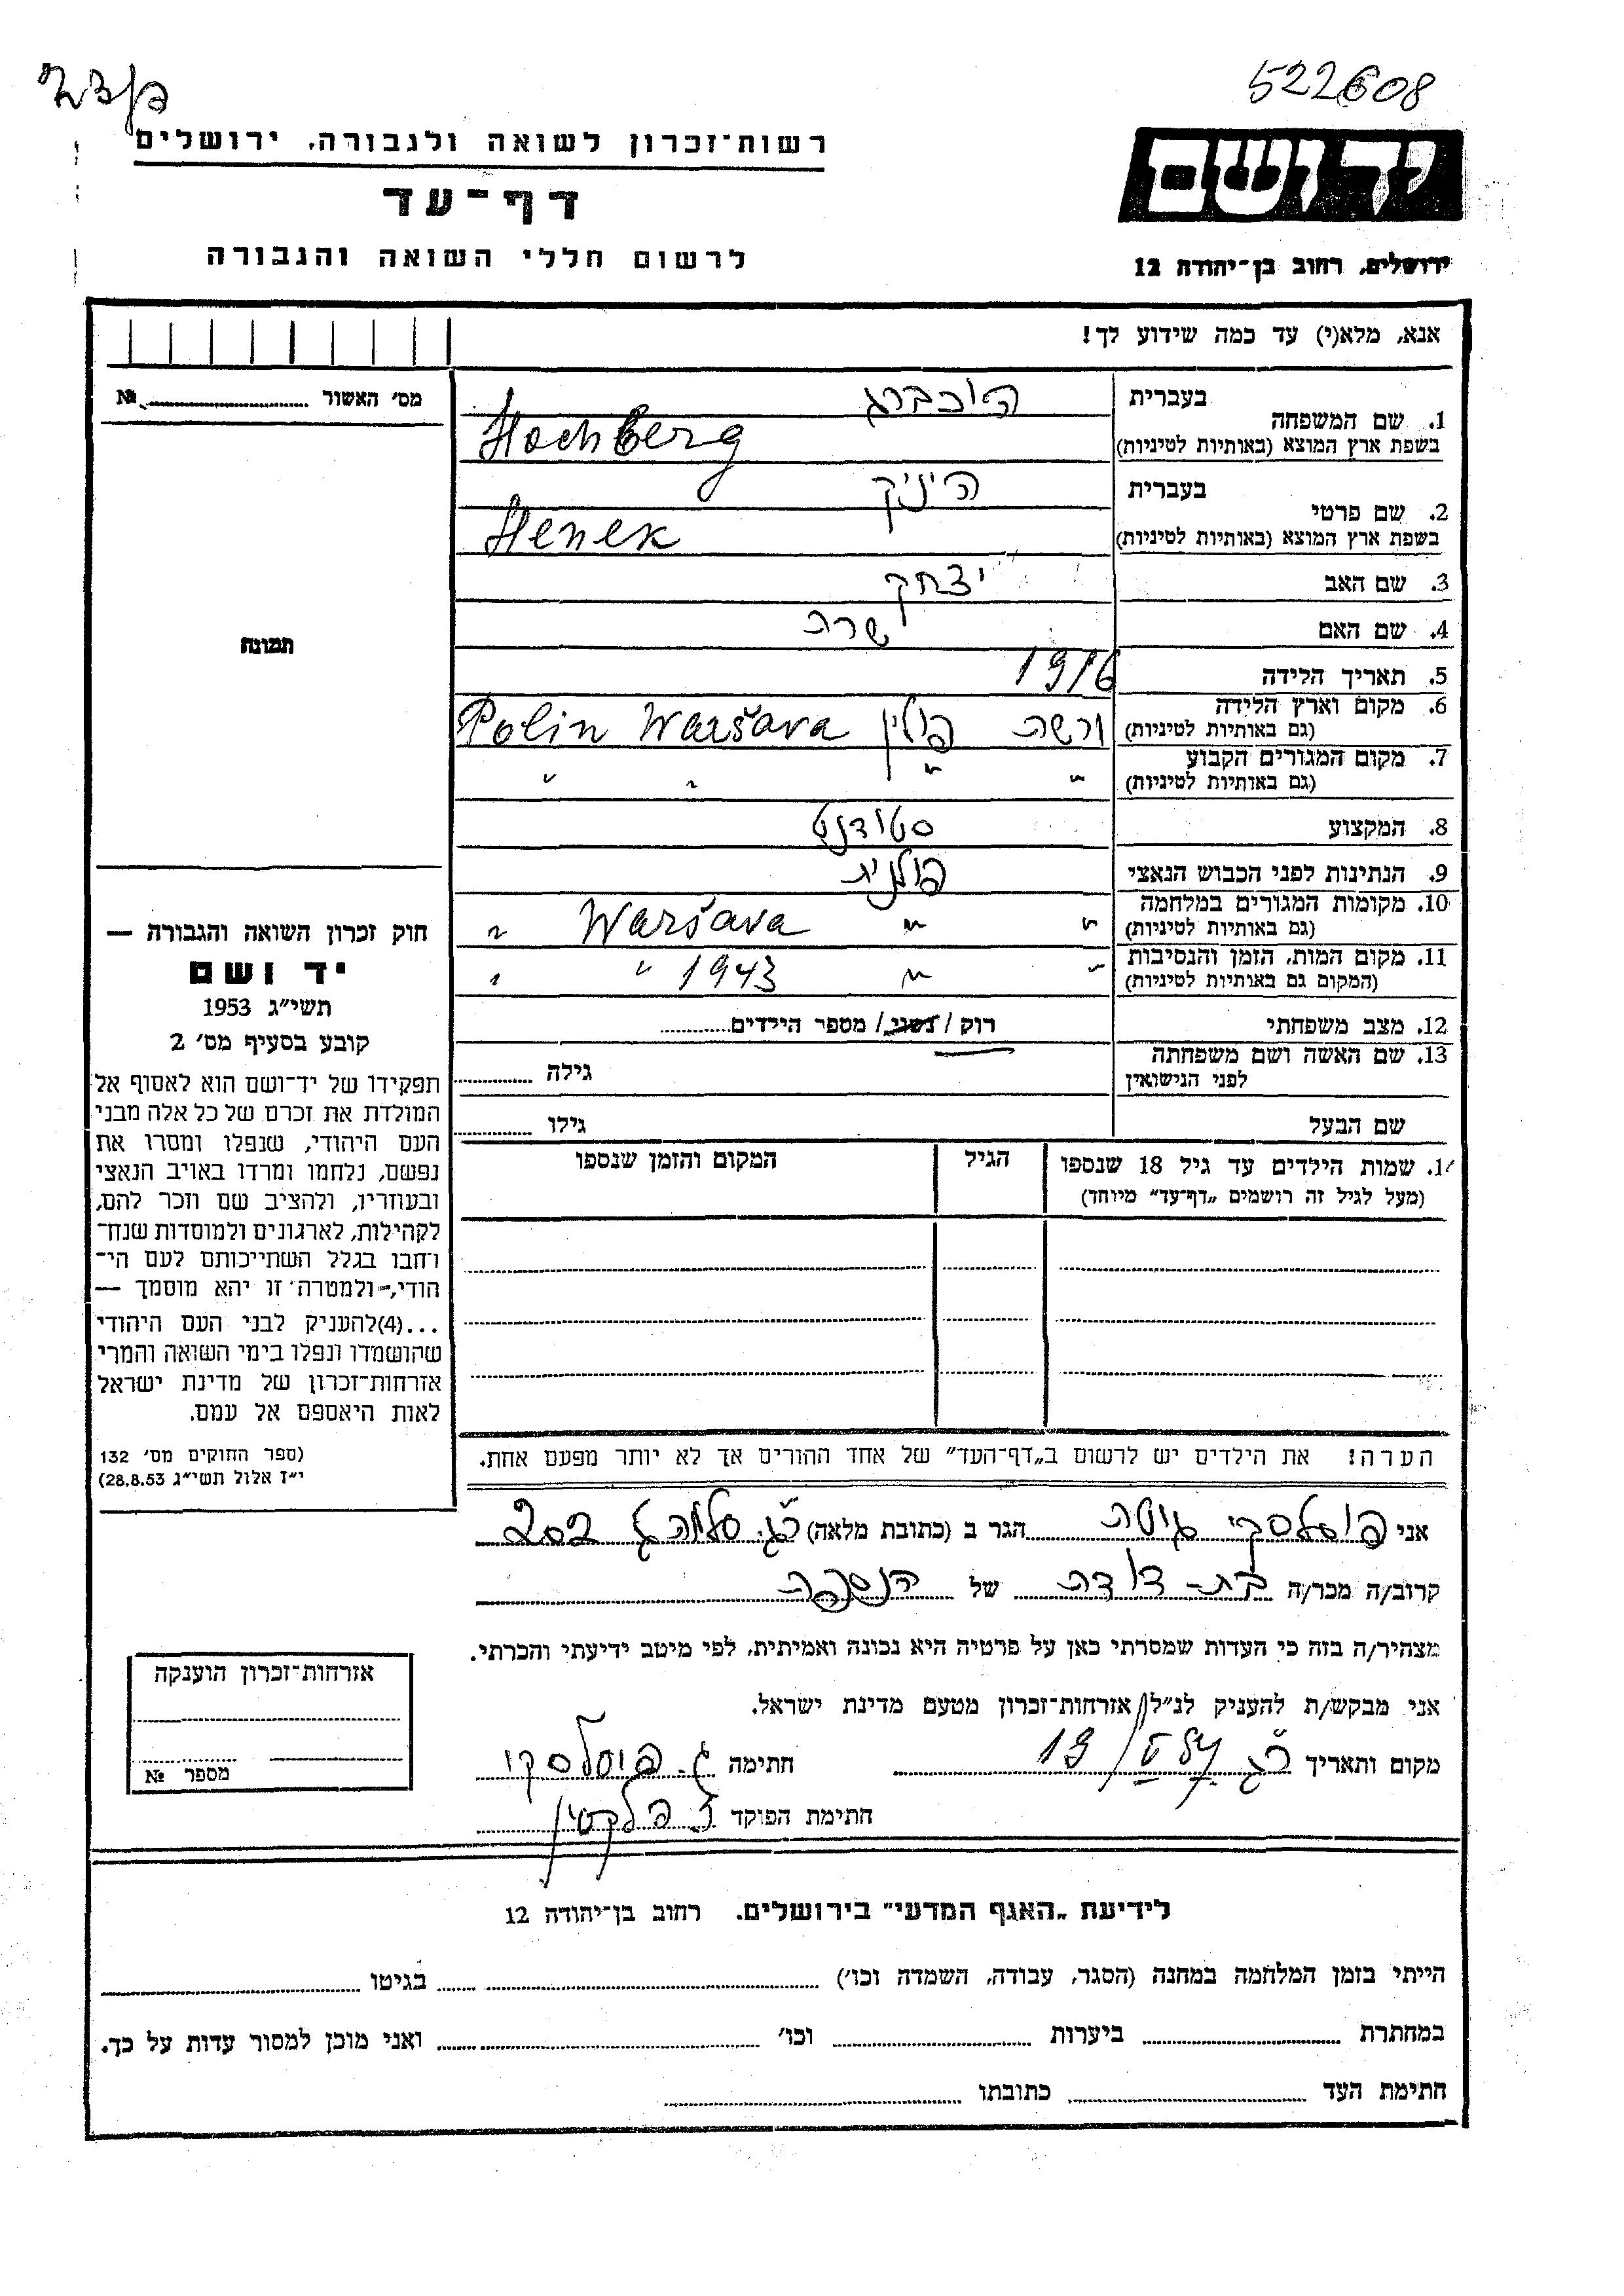 522608
רשות־זכרון לשואה ולגבורה, ירושלים
יד ושם
דף־עד
ירושלים, רחוב בן־יהודה 12
לרשום חללי השואה והגבורה
אנא, מלא(י) עד כמה שידוע לך!
מס׳ האשור ... №
בעברית הוכברג
1. שם המשפחה
בשפת ארץ המוצא (באותיות לטיניות) Hochberg
בעברית היניק
2. שם פרטי
בשפת ארץ המוצא (באותיות לטיניות) Henek
3. שם האב יצחק
4. שם האם שרה
תמונה
5. תאריך הלידה 1916
6. מקום וארץ הלידה
(גם באותיות לטיניות) ורשה פולין Polin Waršava
7. מקום המגורים הקבוע
(גם באותיות לטיניות) " " " "
8. המקצוע סטודנט
9. הנתינות לפני הכבוש הנאצי פולנית
10. מקומות המגורים במלחמה
(גם באותיות לטיניות) " " Waršava "
11. מקום המות, הזמן והנסיבות
(המקום גם באותיות לטיניות) " " 1943 " "
12. מצב משפחתי רוק / נשוי / מספר הילדים
13. שם האשה ושם משפחתה
לפני הנישואין גילה
שם הבעל גילו
חוק זכרון השואה והגבורה —
יד ושם
תשי״ג 1953
קובע בסעיף מס׳ 2
תפקידו של יד־ושם הוא לאסוף אל
המולדת את זכרם של כל אלה מבני
העם היהודי, שנפלו ומסרו את
נפשם, נלחמו ומרדו באויב הנאצי
ובעוזריו, ולהציב שם וזכר להם,
לקהילות, לארגונים ולמוסדות שנח־
רחבו בגלל השתייכותם לעם הי־
הודי, ולמטרה זו יהא מוסמך —
...(4) להעניק לבני העם היהודי
שהושמדו ונפלו בימי השואה והמרי
אזרחות־זכרון של מדינת ישראל
לאות היאספם אל עמם.
(ספר החוקים מס׳ 132
י״ז אלול תשי״ג 28.8.53)
שמות הילדים עד גיל 18 שנספו הגיל המקום והזמן שנספו
(מעל לגיל זה רושמים „דף־עד״ מיוחד)
הערה! את הילדים יש לרשום ב„דף־העד״ של אחד ההורים אך לא יותר מפעם אחת.
אני גיטה הגר ב (כתובת מלאה) 202
קרוב/ה מכר/ה בת־דודה של הנספה
מצהיר/ה בזה כי העדות שמסרתי כאן על פרטיה היא נכונה ואמיתית, לפי מיטב ידיעתי והכרתי.
אני מבקש/ת להעניק לנ״ל אזרחות־זכרון מטעם מדינת ישראל.
מקום ותאריך 19 חתימה
חתימת הפוקד
אזרחות־זכרון הוענקה
מספר №
לידיעת „האגף המדעי״ בירושלים. רחוב בן־יהודה 12
הייתי בזמן המלחמה במחנה (הסגר, עבודה, השמדה וכו׳) בגיטו
במחתרת ביערות וכו׳ ואני מוכן למסור עדות על כך.
חתימת העד כתובתו